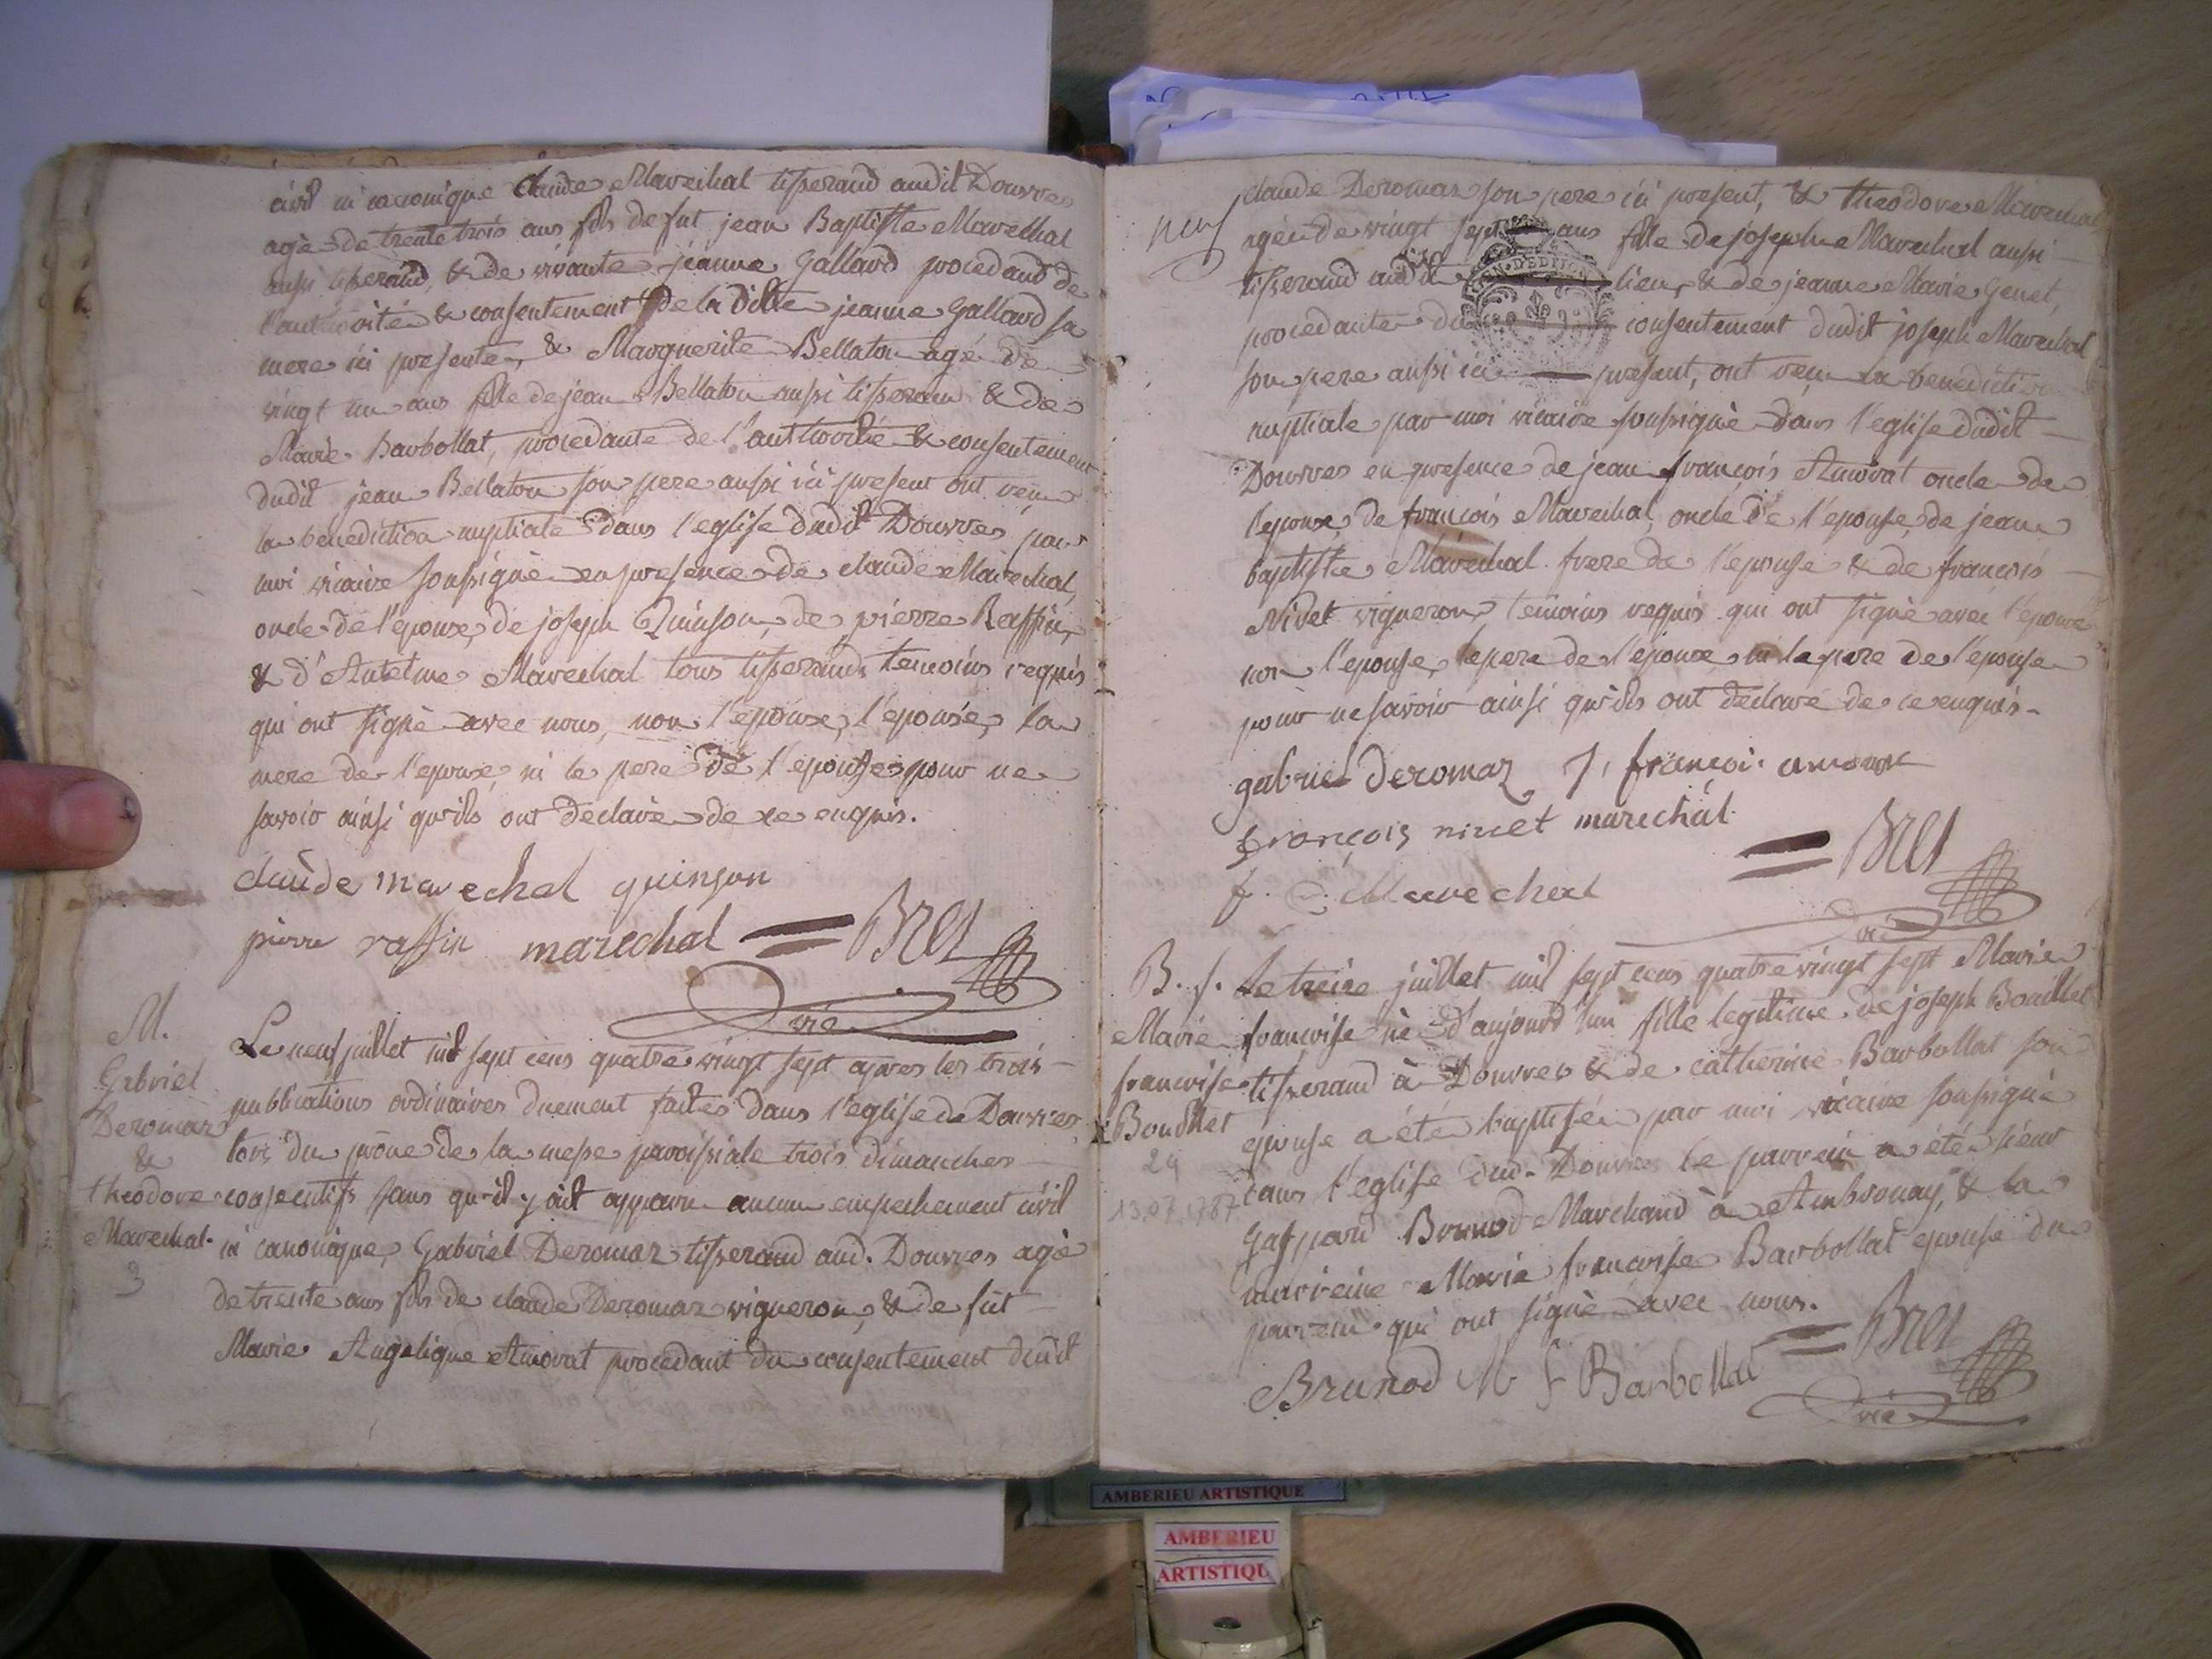 civil ni canonique Claude Marechal tisserand audit Douvres
agé de trente trois ans fils de fut jean Baptiste Marechal
aussi tisserand, & de vivante jeanne Gallard procedand de
l'authorité & consentement de la ditte jeanne Gallard sa
mere ici presente, & Marguerite Bellaton agé de
vingt un ans fille de jean Bellaton aussi tisseran & de
Marie Barbollat, procedante de l'authorité & consentement
dudit jean Bellaton son pere aussi ici present ont reçu
la benediction nuptiale dans l'eglise dudit Douvres par
moi vicaire soussigné en presence de claude Marechal,
oncle de l'epoux, de joseph Quinson, de pierre Raffin,
& d'Antelme Marechal tous tisserands temoins requis
qui ont signé avec nous, non l'epoux, l'epouse, la
mere de l'epoux, ni le pere de l'epouse pour ne
savoir ainsi qu'ils ont declaré de ce enquis.
claude marechal quinson
pierre raffin marechal = Bret
vic
M.
Gabriel
Deromaz
&
theodore
Marechal.
3
Le neuf juillet mil sept cens quatre vingt sept apres les trois
publications ordinaires duement faites dans l'eglise de Douvres
lors du prône de la messe paroissiale trois dimanches
consecutifs sans qu'il y ait apparu aucun empechement civil
ni canonique, Gabriel Deromaz tisserand aud. Douvres agé
de trente ans fils de claude Deromaz vigneron, & de fut
Marie Angelique Amorat procedant du consentement dudit
neuf
claude Deromaz son pere ici present, & theodore Marechal
agée de vingt sept ans fille de joseph Marechal aussi
tisserand audit lieu, & de jeanne Marie Genet,
procedante du consentement dudit joseph Marechal
son pere aussi ici present, ont reçu la benediction
nuptiale par moi vicaire soussigné dans l'eglise dudit
Douvres en presence de jean françois Amorat oncle de
l'epoux, de françois Marechal, oncle de l'epouse, de jean
baptiste Marechal frere de l'epouse & de françois
Nivet vigneron, temoins requis qui ont signé avec l'epoux
non l'epouse, le pere de l'epoux ni le pere de l'epouse
pour ne savoir ainsi qu'ils ont declaré de ce enquis.
gabriel deromaz J, françoi. amorat
françois nivet marechal
f. Marechal = Bret
vic
B. f.
Marie
francoise
Bouillet
24
13.07.1787
Le treize juillet mil sept cens quatre vingt sept Marie
francoise né d'aujourd'hui fille legitime de joseph Bouillet
tisserand à Douvres & de catherine Barbollat son
epouse a été baptisée par moi vicaire soussigné
dans l'eglise dud. Douvres le parrein a été sieur
Gaspard Brunod Marchand à Ambronay, & la
marreine Marie francoise Barbollat epouse du
parrein qui ont signé avec nous.
= Bret
Brunod M f Barbollat
vic
AMBERIEU ARTISTIQUE
AMBERIEU
ARTISTIQU